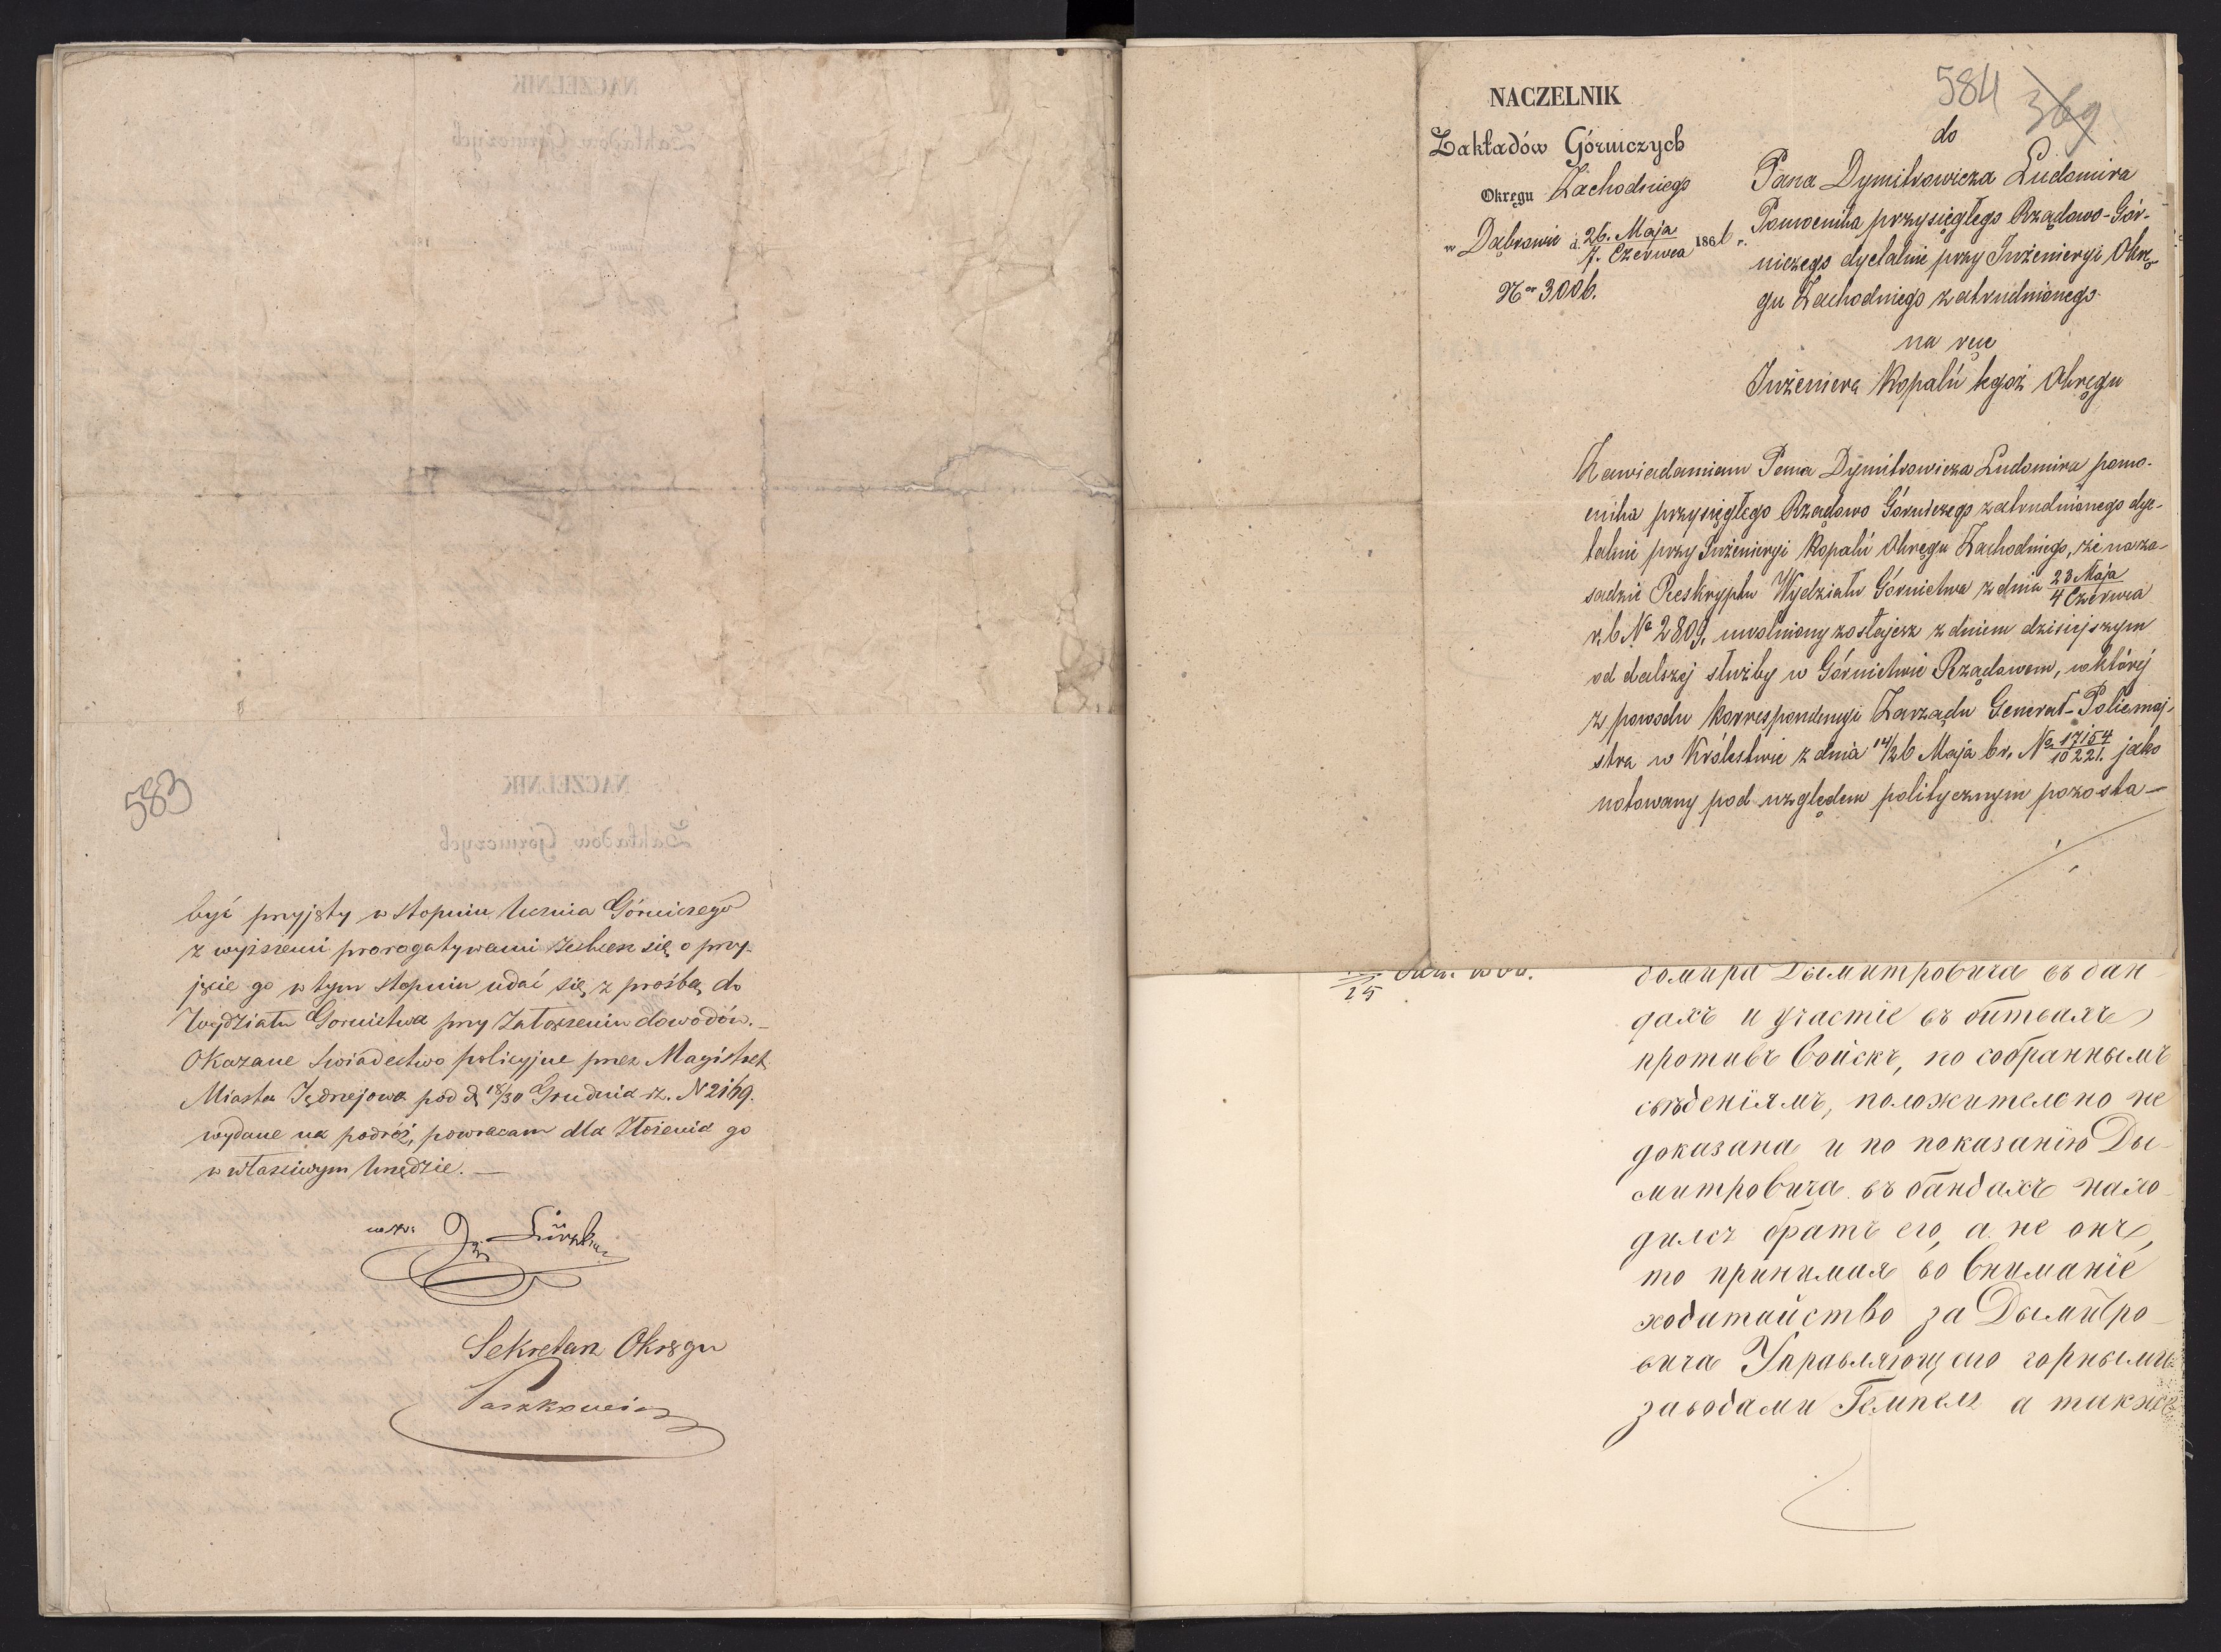 583
być przyjęty w stopniu Ucznia Górniczego
z wyższemi prorogatywami zechce się o przy-
jęcie go w tym stopniu udać się z prośbą do
Wydziału Gornictwa przy załączeniu dowodów. —
Okazane świadectwo policyjne przez Magistrat
Miasta Jędrzejowa pod d 18/30 Grudnia rz. N 2169.
wydane na podróż, powracam dla złożenia go
w właściwym Urzędzie. —
Sekretarz Okręgu
Paszkowicz
584
369
NACZELNIK
Zakładów Górniczych
Okręgu Zachodniego
w Dąbrowie d. 26. Maja / 7. Czerwca 1866 r.
Nor 3006.
do
Pana Dymitrowicza Ludomira
Pomocnika przysięgłego Rządowo-Gór-
niczego dyetalnie przy Inżenieryi Okrę-
gu Zachodniego zatrudnionego
na ręce
Inżeniera Kopalń tegoż Okręgu
Zawiadamiam Pana Dymitrowicza Ludomira pomo-
cnika przysięgłego Rządowo Górniczego zatrudnionego dye-
talnie przy Inżenieryi Kopalń Okręgu Zachodniego, że na za-
sadzie Reskryptu Wydziału Górnictwa z dnia 23 Maja / 4 Czerwca
r. b No 2809, uwolniony zostajesz z dniem dzisiejszym
od dalszej służby w Górnictwie Rządowem, w której
z powodu korrespondencyi Zarządu Generał-Policmaj-
stra w Królestwie z dnia 14/26 Maja br. No 17154/10221. jako
notowany pod względem politycznym pozosta-
25
домира Дымитровича въ бан-
дахъ и участіе въ битвахъ
противъ Войскъ, по собраннымъ
свѣденіямъ, положительно не
доказана и по показанію Ды-
митровича въ бандахъ нахо-
дился братъ его, а не онъ,
то принимая во вниманіе
ходатайство за Дымитро-
вича Управляющаго горными
заводами Гемпель а также